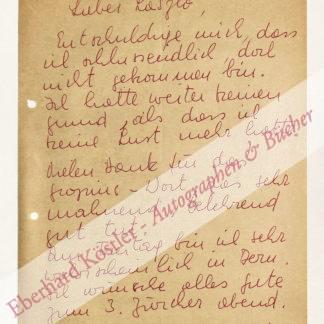 Lieber Laszlo,
Entschuldige mich, dass
ich schlussendlich doch
nicht gekommen bin.
Ich hatte weiter keinen
grund, als dass ich
keine Lust mehr hatte.
Vielen Dank für das
gropius-Wort, das sehr
mahnend belehrend
gut tut.
bin ich sehr
wahrscheinlich in Bern.
Ich wünsche alles gute
zum 3. Zürcher abend.
Eberhard Köstler - Autographen & Bücher